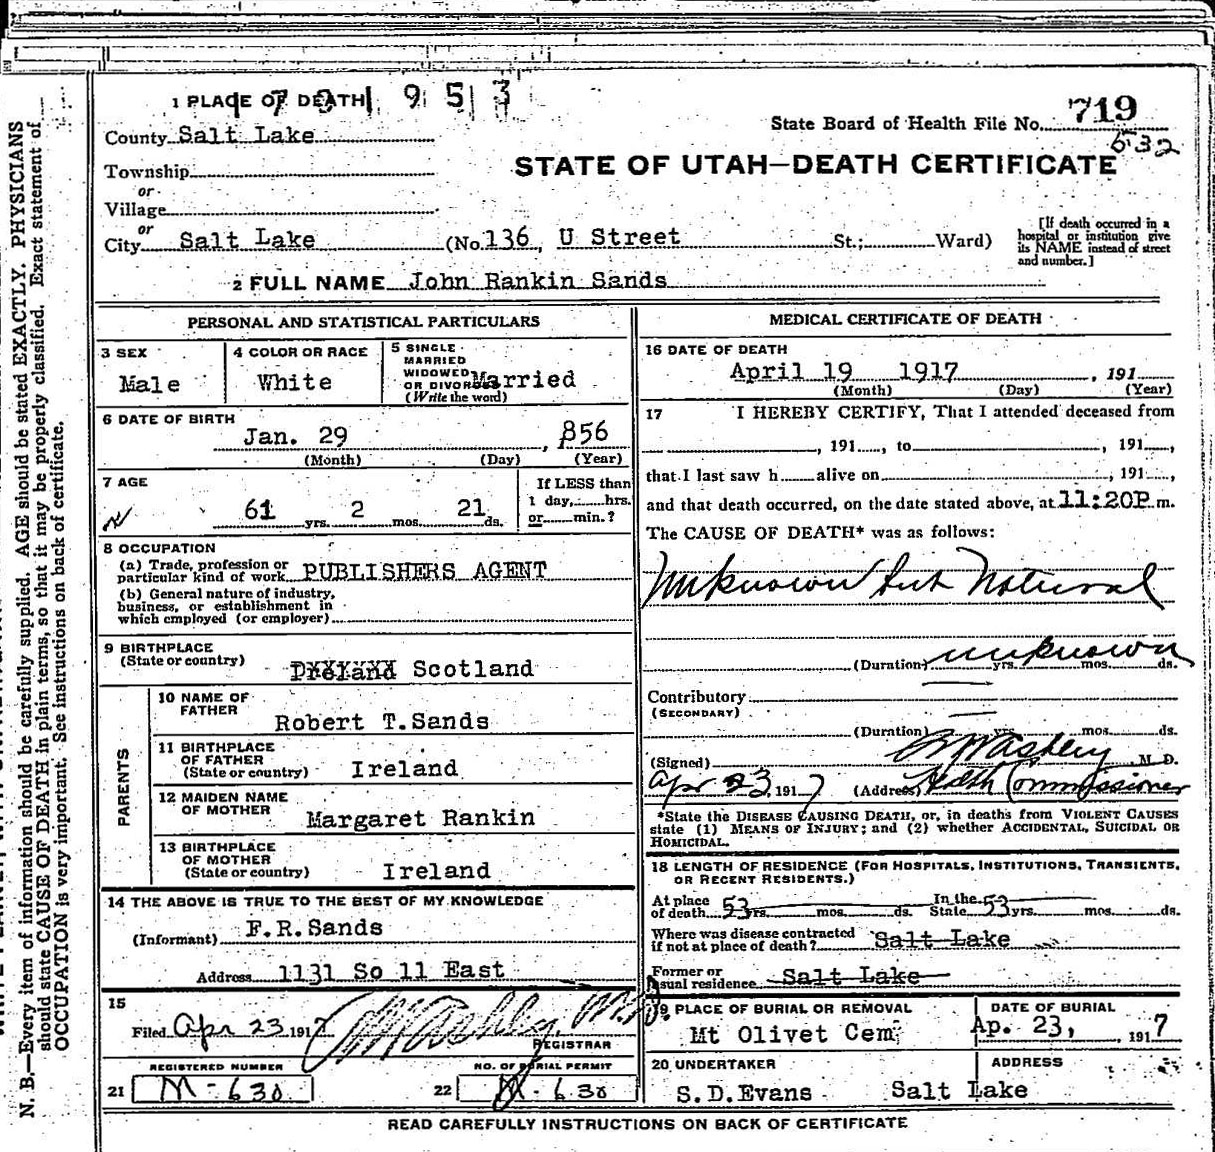 1 PLACE OF DEATH 1791 953
County Salt Lake
State Board of Health File No. 719
632
Township
STATE OF UTAH—DEATH CERTIFICATE
or
Village
or
City Salt Lake (No. 136 U Street St.; Ward)
[If death occurred in a
hospital or institution give
its NAME instead of street
and number.]
2 FULL NAME John Rankin Sands
PERSONAL AND STATISTICAL PARTICULARS
3 SEX
Male
4 COLOR OR RACE
White
5 SINGLE
MARRIED
WIDOWED
OR DIVORCED
(Write the word)
Married
6 DATE OF BIRTH
Jan. 29, 856
(Month) (Day) (Year)
7 AGE
61 yrs. 2 mos. 21 ds.
If LESS than
1 day, hrs.
or min.?
8 OCCUPATION
(a) Trade, profession or
particular kind of work PUBLISHERS AGENT
(b) General nature of industry,
business, or establishment in
which employed (or employer)
9 BIRTHPLACE
(State or country) Scotland
PARENTS
10 NAME OF
FATHER
Robert T.Sands
11 BIRTHPLACE
OF FATHER
(State or country) Ireland
12 MAIDEN NAME
OF MOTHER
Margaret Rankin
13 BIRTHPLACE
OF MOTHER
(State or country) Ireland
14 THE ABOVE IS TRUE TO THE BEST OF MY KNOWLEDGE
(Informant) F.R.Sands
Address 1131 So 11 East
15
Filed Apr 23, 1917
REGISTRAR
REGISTERED NUMBER
21 M-630
NO. OF BURIAL PERMIT
22 M-630
MEDICAL CERTIFICATE OF DEATH
16 DATE OF DEATH
April 19 1917, 191
(Month) (Day) (Year)
17 I HEREBY CERTIFY, That I attended deceased from
, 191 , to , 191 ,
that I last saw h alive on , 191 ,
and that death occurred, on the date stated above, at 11:20P m.
The CAUSE OF DEATH* was as follows:
Unknown but Natural
(Duration) unknown yrs. mos. ds.
Contributory
(SECONDARY)
(Duration) yrs. mos. ds.
(Signed) , M. D.
Apr 23, 1917 (Address) Health Commissioner
*State the DISEASE CAUSING DEATH, or, in deaths from VIOLENT CAUSES
state (1) MEANS OF INJURY; and (2) whether ACCIDENTAL, SUICIDAL OR
HOMICIDAL.
18 LENGTH OF RESIDENCE (FOR HOSPITALS, INSTITUTIONS, TRANSIENTS,
OR RECENT RESIDENTS.)
At place
of death 53 yrs. mos. ds.
In the
State 53 yrs. mos. ds.
Where was disease contracted
if not at place of death? Salt Lake
Former or
usual residence Salt Lake
19 PLACE OF BURIAL OR REMOVAL
Mt Olivet Cem.
DATE OF BURIAL
Ap. 23, , 1917
20 UNDERTAKER
S.D.Evans
ADDRESS
Salt Lake
READ CAREFULLY INSTRUCTIONS ON BACK OF CERTIFICATE
N. B.—Every item of information should be carefully supplied. AGE should be stated EXACTLY. PHYSICIANS
should state CAUSE OF DEATH in plain terms, so that it may be properly classified. Exact statement of
OCCUPATION is very important. See instructions on back of certificate.